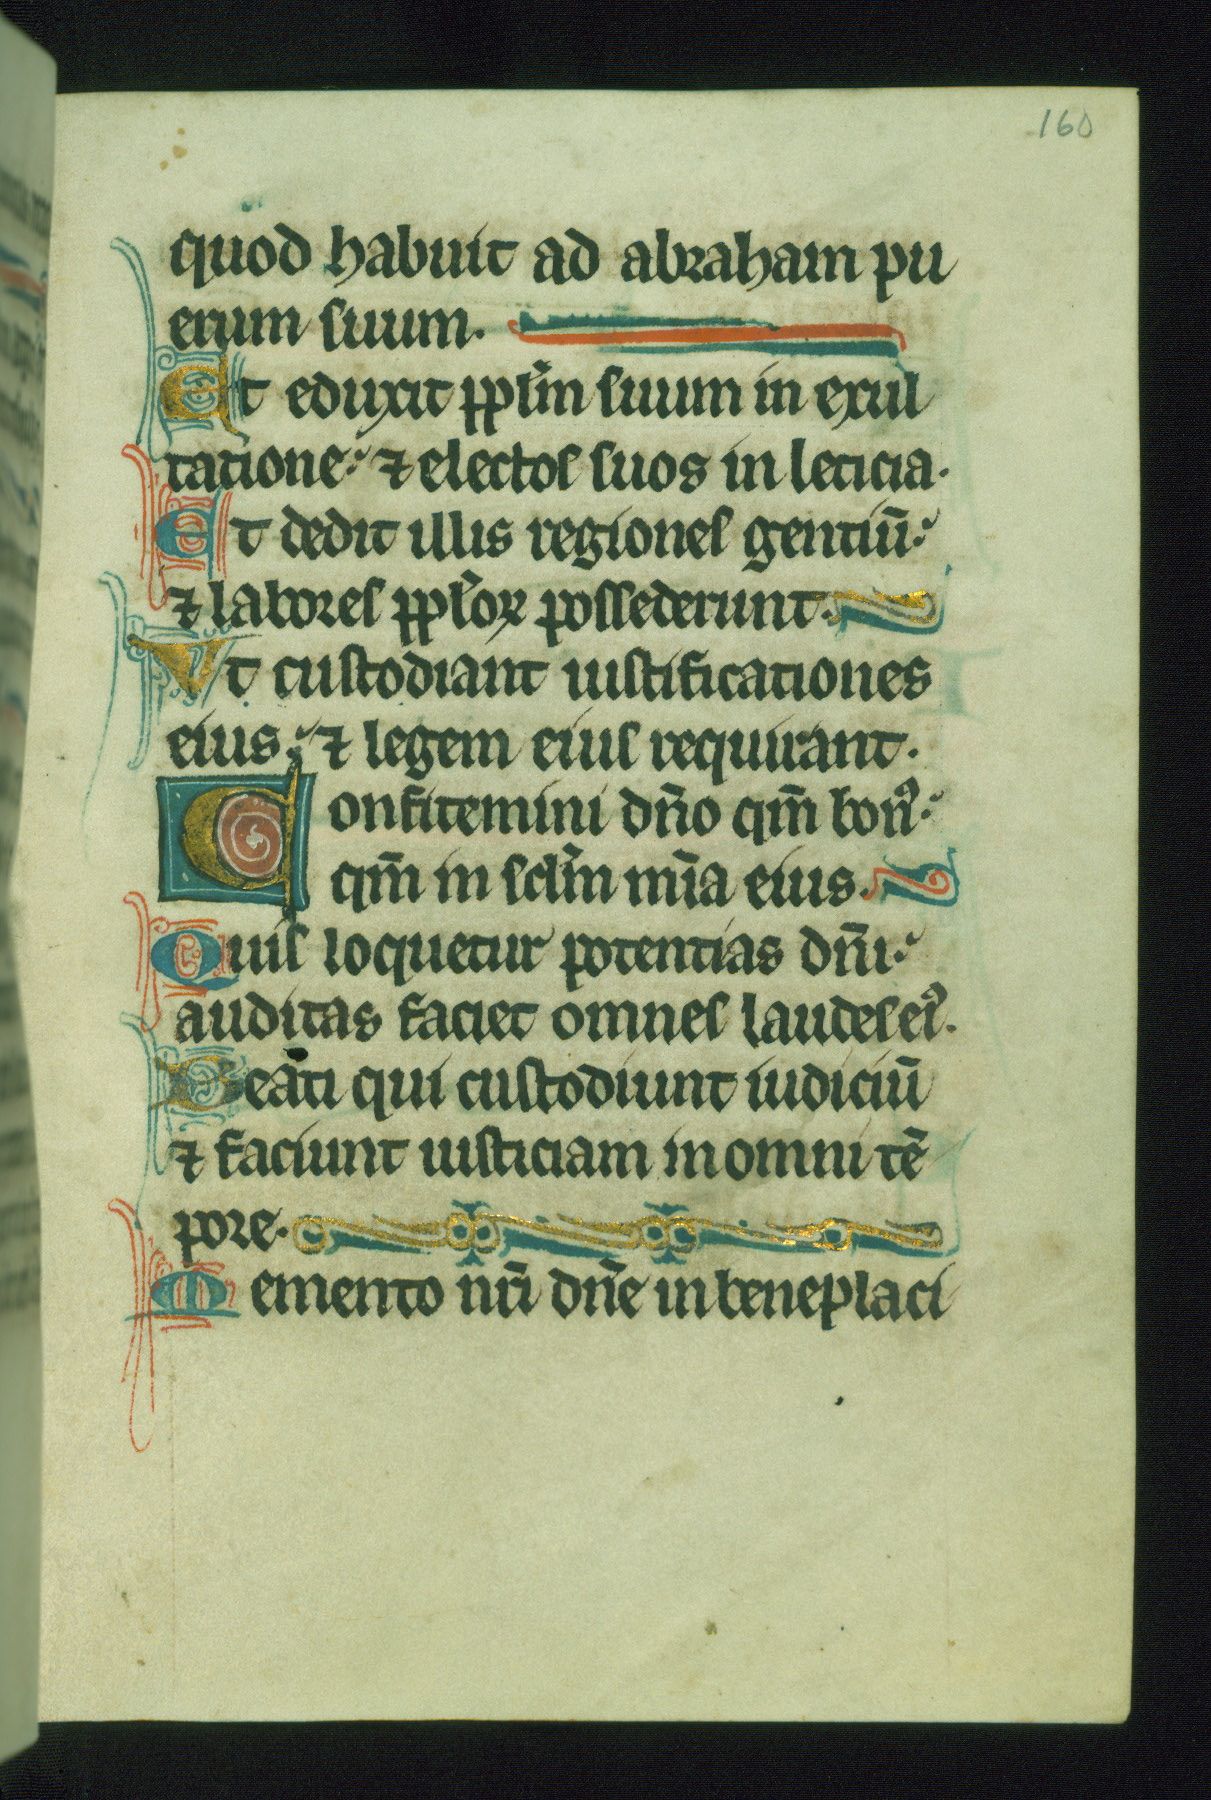 160
quod habuit ad abraham pu
erum suum.
Et eduxit pplm̄ suum in exul
tatione: ⁊ electos suos in leticia.
Et dedit illis regiones gentiū:
⁊ labores pplōꝝ possederunt.
Vt custodiant iustificationes
eius: ⁊ legem eius requirant.
Confitemini dn̄o qm̄ bonꝰ:
qm̄ in sclm̄ mīa eius.
Quis loquetur potentias dn̄i:
auditas faciet omnes laudes eiꝰ.
Beati qui custodiunt iudiciū
⁊ faciunt iusticiam in omni tē
pore.
Memento nr̄i dn̄e in beneplaci